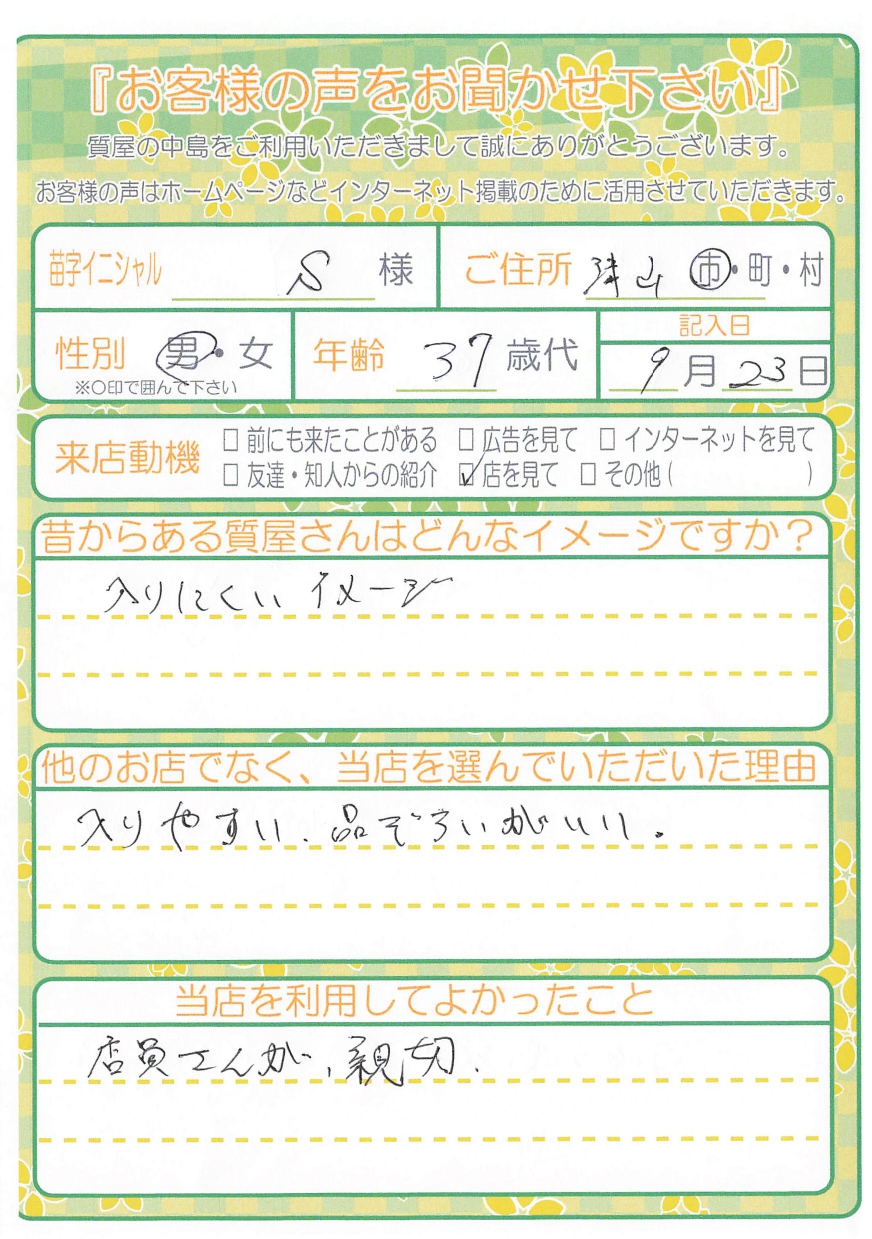 『お客様の声をお聞かせ下さい』
質屋の中島をご利用いただきまして誠にありがとうございます。
お客様の声はホームページなどインターネット掲載のために活用させていただきます。
苗字イニシャル S 様 ご住所 津山 市・町・村
記入日
性別 男・女 年齢 37 歳代 9月23日
※○印で囲んで下さい
来店動機 □ 前にも来たことがある □ 広告を見て □ インターネットを見て
□ 友達・知人からの紹介 ☑ 店を見て □ その他( )
昔からある質屋さんはどんなイメージですか?
入りにくい イメージ
他のお店でなく、当店を選んでいただいた理由
入りやすい、品ぞろいがいい。
当店を利用してよかったこと
店員さんが、親切.